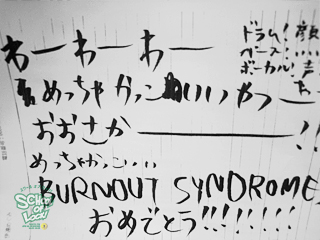 わーわーわー
めっちゃかっこいいやつ
おおさか――――!!
めっちゃかっこいい
BURNOUT SYNDROMES
おめでとう!!!!!!
ドラム!
ベース
ボーカル!
顔
声
SCHOOL OF LOCK!